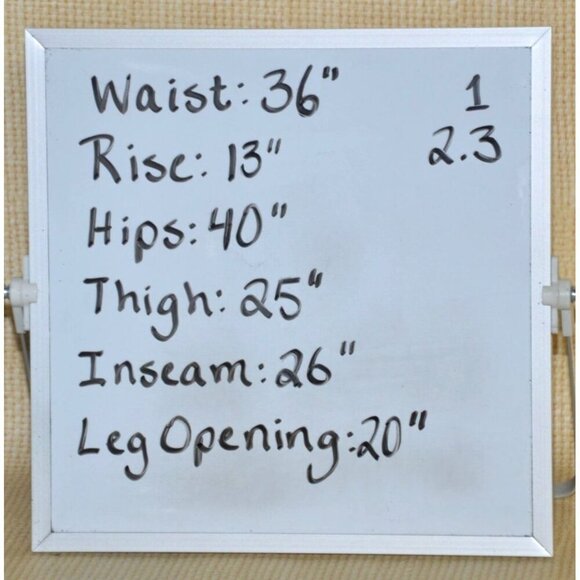 Waist: 36" 1
Rise: 13" 2.3
Hips: 40"
Thigh: 25"
Inseam: 26"
Leg Opening: 20"